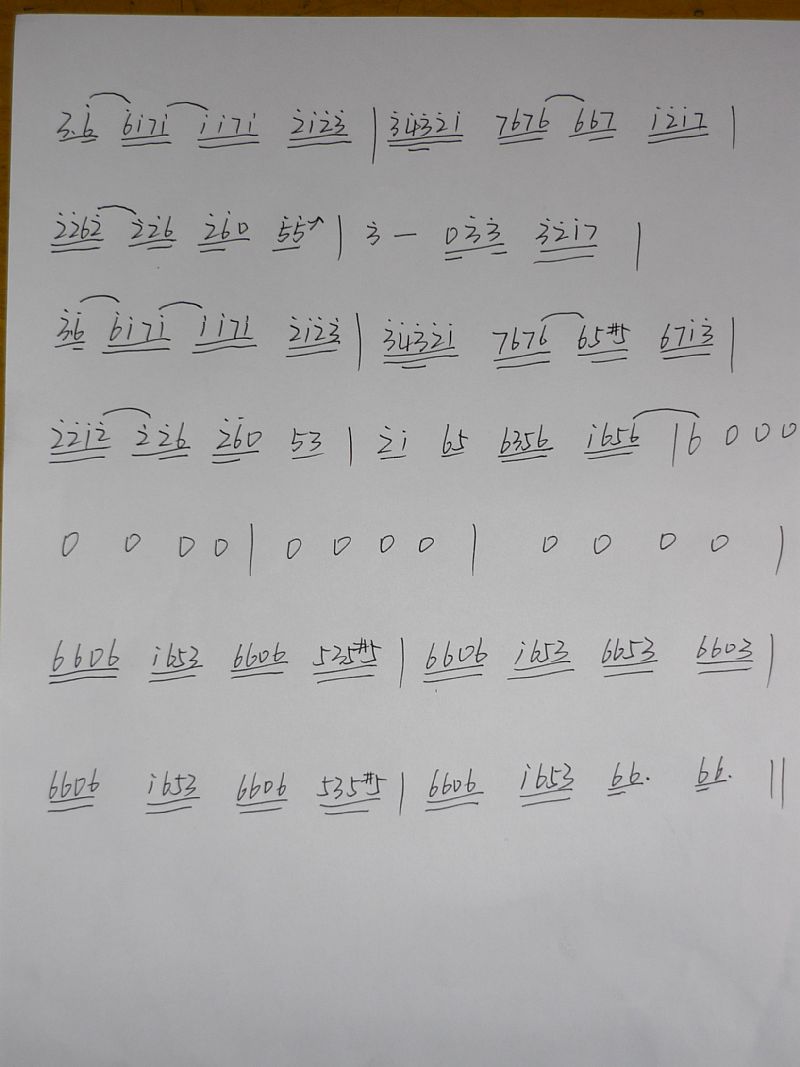 3.6 6i7i ii7i 2i23 | 34321 7676 667 i2i7 |
2262 226 260 55 | 3 — 033 3217 |
36 6i7i ii7i 2i23 | 34321 7676 65#5 67i3 |
22i2 226 260 53 | 2i 65 6356 i656 | 6 0 0 0
0 0 0 0 | 0 0 0 0 | 0 0 0 0 |
6606 i653 6606 535#5 | 6606 i653 6653 6603 |
6606 i653 6606 535#5 | 6606 i653 66. 66. ||